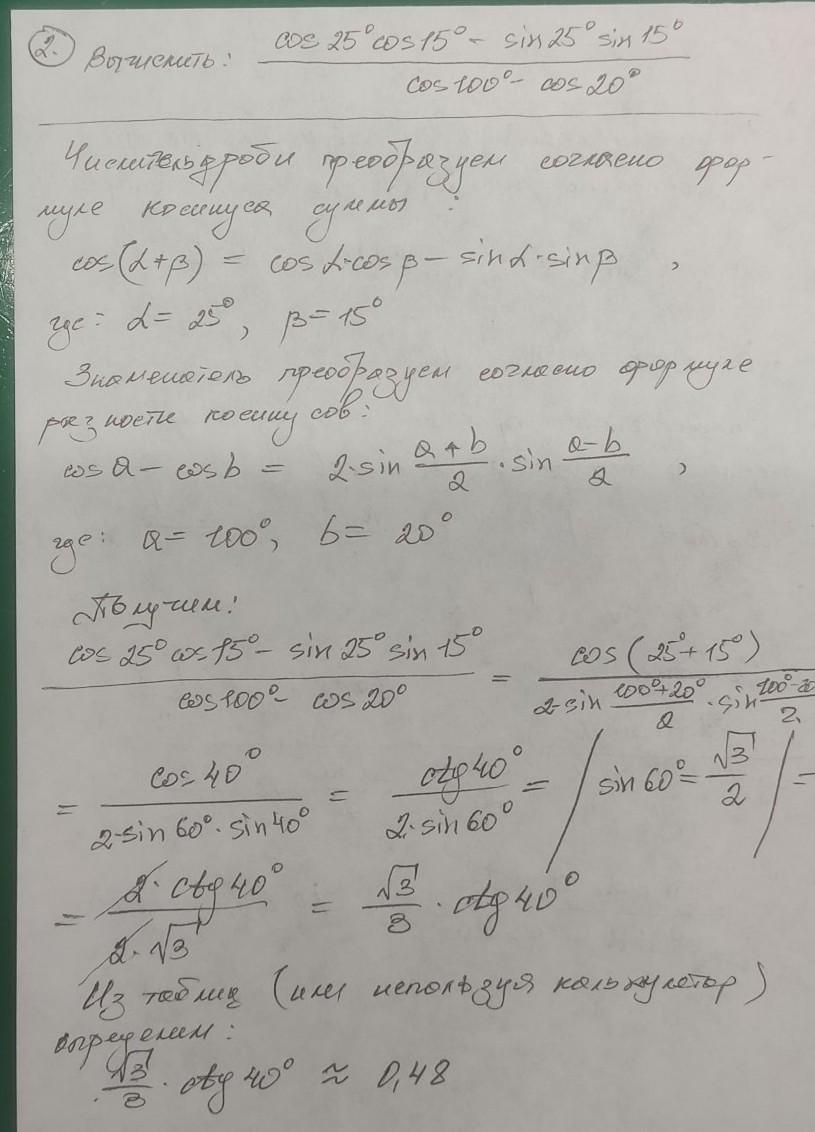 2. Вычислить: (cos 25° cos 15° − sin 25° sin 15°) / (cos 100° − cos 20°)
Числитель дроби преобразуем согласно фор-
муле косинуса суммы :
cos(α+β) = cos α·cos β − sin α·sin β ,
где: α = 25°, β = 15°
Знаменатель преобразуем согласно формуле
разности косинусов:
cos a − cos b = 2·sin (a+b)/2 · sin (a−b)/2 ,
где: a = 100°, b = 20°
Получим:
(cos 25° cos 15° − sin 25° sin 15°) / (cos 100° − cos 20°) = cos (25°+15°) / (2·sin (100°+20°)/2 · sin (100°−20)/2)
= cos 40° / (2·sin 60°·sin 40°) = ctg 40° / (2·sin 60°) = / sin 60° = √3/2 / =
= 2·ctg 40° / (2·√3) = √3/3 · ctg 40°
Из таблиц (или используя калькулятор)
определим:
√3/3 · ctg 40° ≈ 0,48